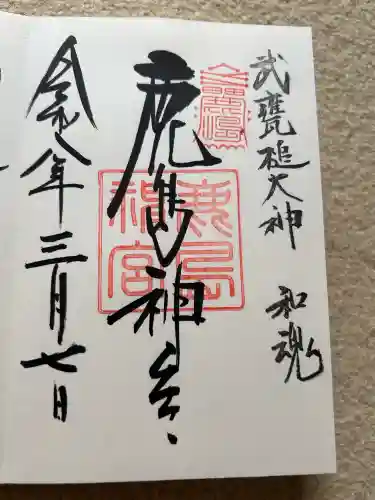 武甕槌大神 和魂
鹿島神宮
鹿島神宮
令和八年三月七日